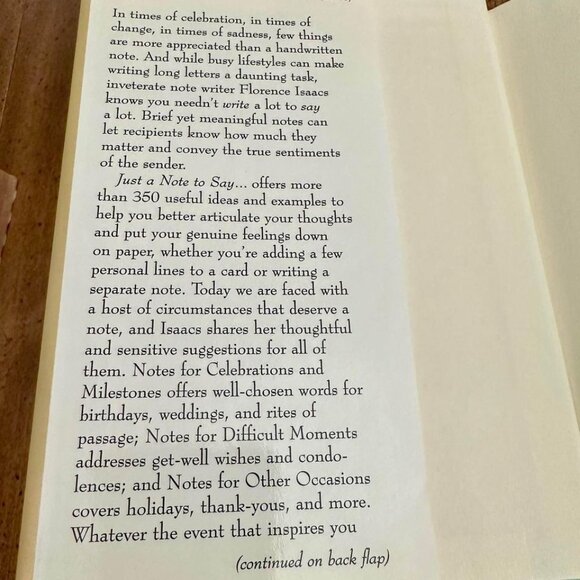 In times of celebration, in times of
change, in times of sadness, few things
are more appreciated than a handwritten
note. And while busy lifestyles can make
writing long letters a daunting task,
inveterate note writer Florence Isaacs
knows you needn't write a lot to say
a lot. Brief yet meaningful notes can
let recipients know how much they
matter and convey the true sentiments
of the sender.
Just a Note to Say... offers more
than 350 useful ideas and examples to
help you better articulate your thoughts
and put your genuine feelings down
on paper, whether you're adding a few
personal lines to a card or writing a
separate note. Today we are faced with
a host of circumstances that deserve a
note, and Isaacs shares her thoughtful
and sensitive suggestions for all of
them. Notes for Celebrations and
Milestones offers well-chosen words for
birthdays, weddings, and rites of
passage; Notes for Difficult Moments
addresses get-well wishes and condo-
lences; and Notes for Other Occasions
covers holidays, thank-yous, and more.
Whatever the event that inspires you
(continued on back flap)